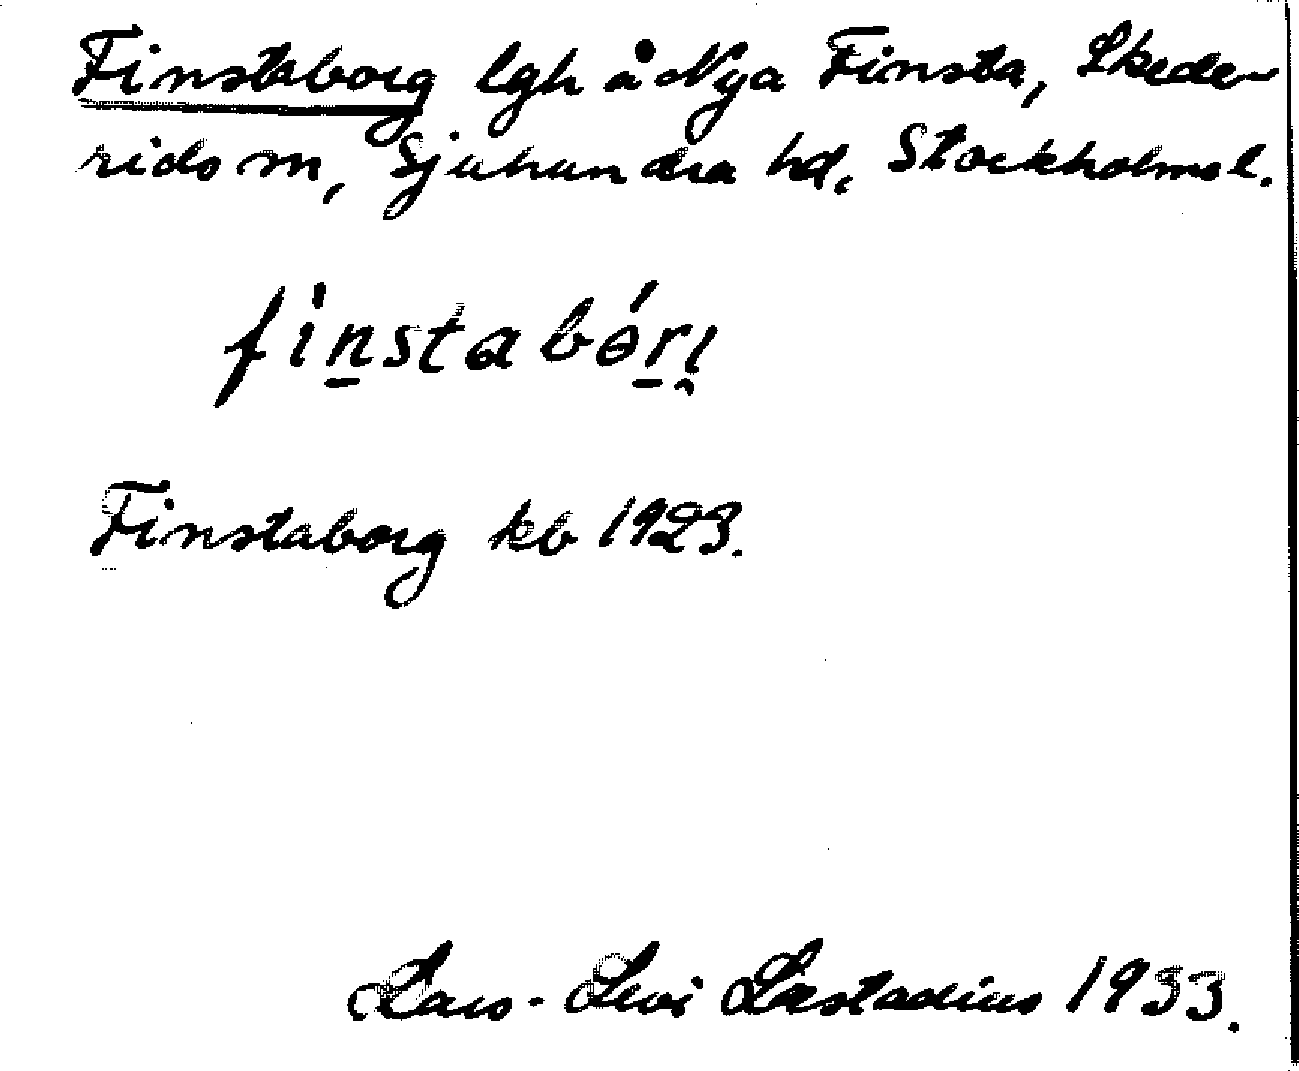 Finstaborg lgh å Nya Finsta, Skede-
rids sn, Sjuhundra hd, Stockholms l.
fìnstabórı
Finstaborg kb 1923.
Lars-Levi Læstadius 1933.